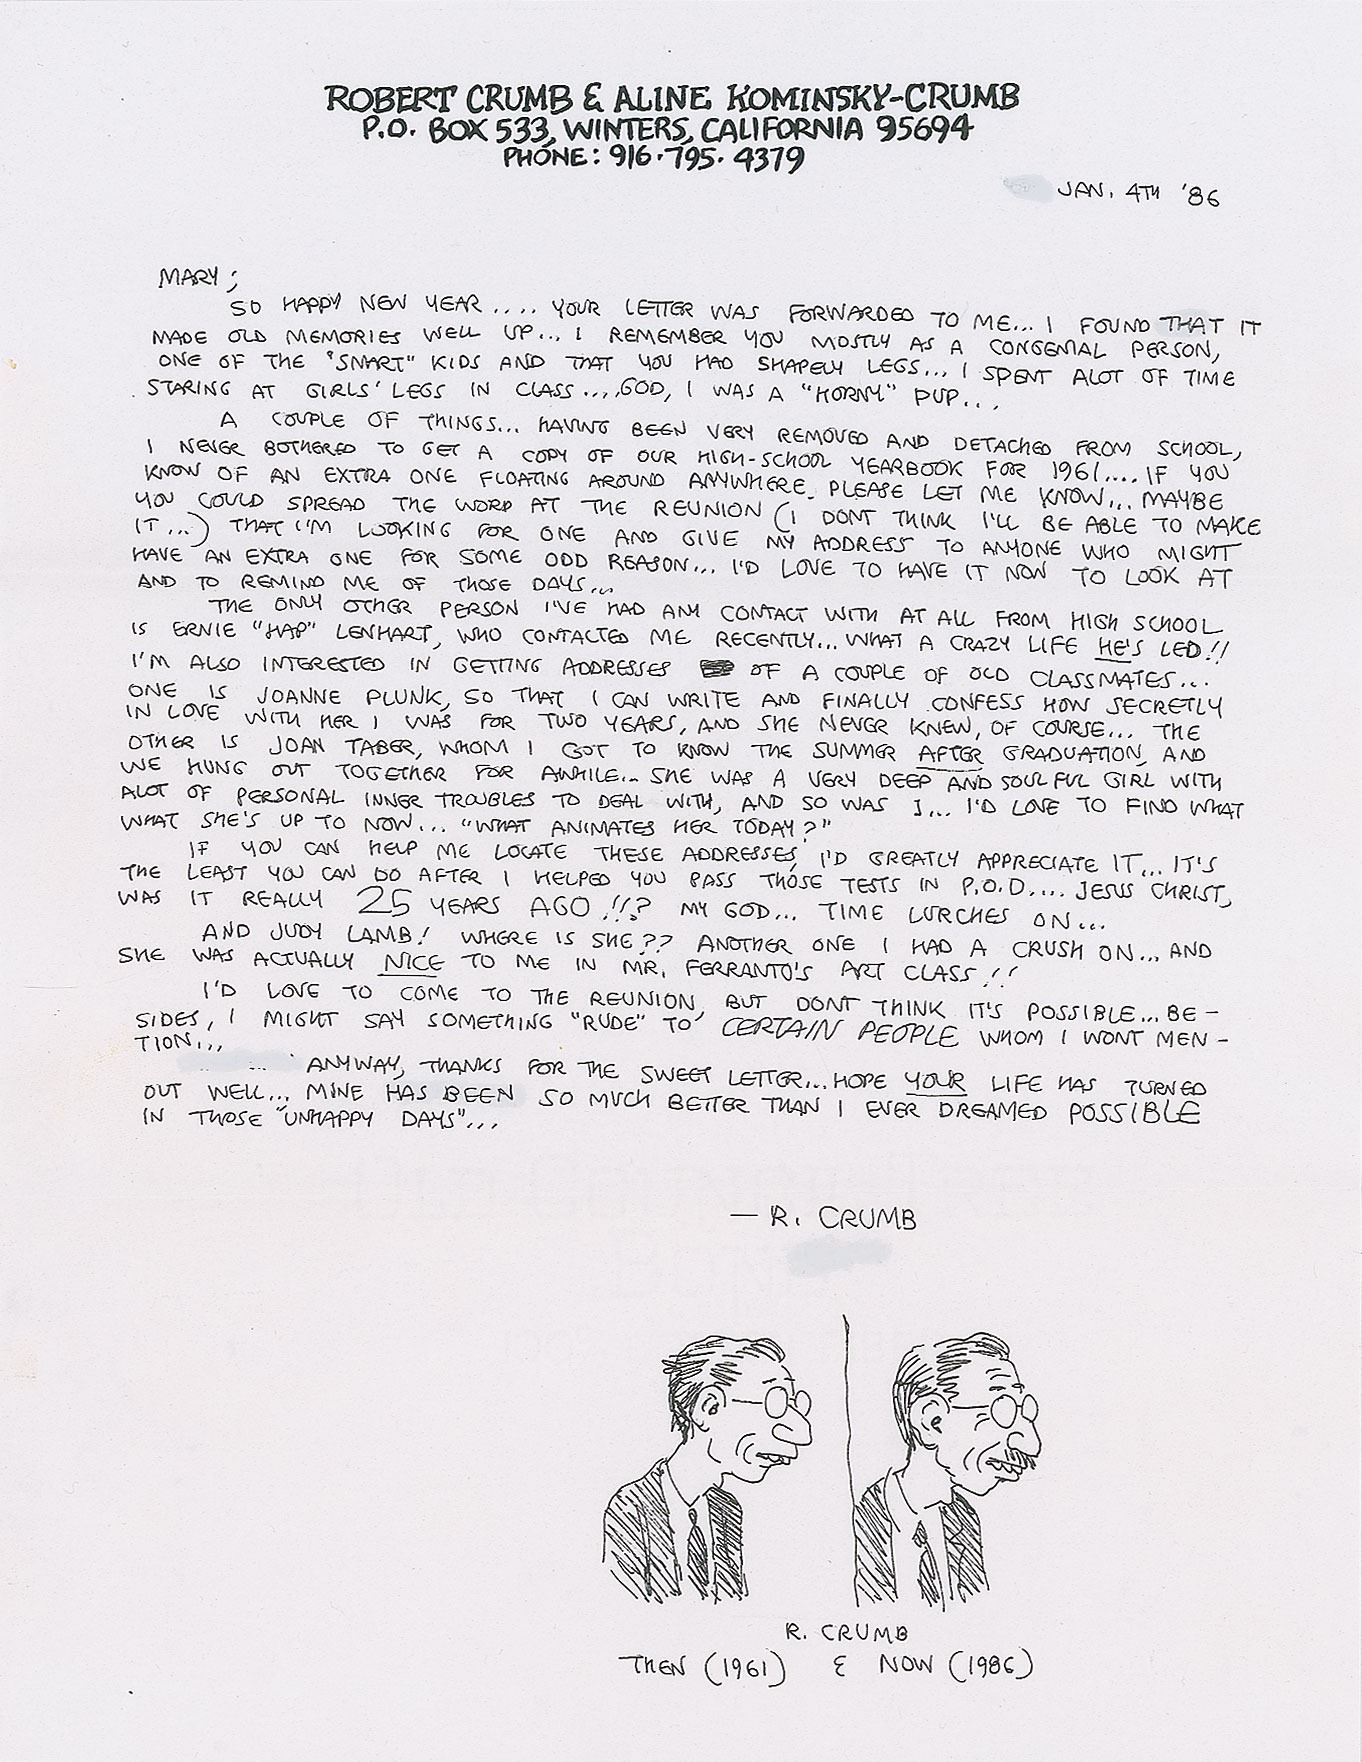 ROBERT CRUMB & ALINE KOMINSKY-CRUMB
P.O. BOX 533, WINTERS, CALIFORNIA 95694
PHONE: 916·795·4379
JAN. 4TH '86
MARY;
SO HAPPY NEW YEAR..... YOUR LETTER WAS FORWARDED TO ME... I FOUND THAT IT
MADE OLD MEMORIES WELL UP... I REMEMBER YOU MOSTLY AS A CONGENIAL PERSON,
ONE OF THE "SMART" KIDS AND THAT YOU HAD SHAPELY LEGS... I SPENT ALOT OF TIME
STARING AT GIRLS' LEGS IN CLASS....GOD, I WAS A "HORNY" PUP...
A COUPLE OF THINGS... HAVING BEEN VERY REMOVED AND DETACHED FROM SCHOOL,
I NEVER BOTHERED TO GET A COPY OF OUR HIGH-SCHOOL YEARBOOK FOR 1961.... IF YOU
KNOW OF AN EXTRA ONE FLOATING AROUND ANYWHERE, PLEASE LET ME KNOW... MAYBE
YOU COULD SPREAD THE WORD AT THE REUNION (I DONT THINK I'LL BE ABLE TO MAKE
IT...) THAT I'M LOOKING FOR ONE AND GIVE MY ADDRESS TO ANYONE WHO MIGHT
HAVE AN EXTRA ONE FOR SOME ODD REASON... I'D LOVE TO HAVE IT NOW TO LOOK AT
AND TO REMIND ME OF THOSE DAYS...
THE ONLY OTHER PERSON I'VE HAD ANY CONTACT WITH AT ALL FROM HIGH SCHOOL
IS ERNIE "HAP" LENHART, WHO CONTACTED ME RECENTLY... WHAT A CRAZY LIFE HE'S LED!!
I'M ALSO INTERESTED IN GETTING ADDRESSES OF A COUPLE OF OLD CLASSMATES...
ONE IS JOANNE PLUNK, SO THAT I CAN WRITE AND FINALLY CONFESS HOW SECRETLY
IN LOVE WITH HER I WAS FOR TWO YEARS, AND SHE NEVER KNEW, OF COURSE... THE
OTHER IS JOAN TABER, WHOM I GOT TO KNOW THE SUMMER AFTER GRADUATION, AND
WE HUNG OUT TOGETHER FOR AWHILE... SHE WAS A VERY DEEP AND SOULFUL GIRL WITH
ALOT OF PERSONAL INNER TROUBLES TO DEAL WITH, AND SO WAS I... I'D LOVE TO FIND WHAT
WHAT SHE'S UP TO NOW... "WHAT ANIMATES HER TODAY?"
IF YOU CAN HELP ME LOCATE THESE ADDRESSES, I'D GREATLY APPRECIATE IT... IT'S
THE LEAST YOU CAN DO AFTER I HELPED YOU PASS THOSE TESTS IN P.O.D.... JESUS CHRIST,
WAS IT REALLY 25 YEARS AGO!!? MY GOD... TIME LURCHES ON...
AND JUDY LAMB! WHERE IS SHE?? ANOTHER ONE I HAD A CRUSH ON... AND
SHE WAS ACTUALLY NICE TO ME IN MR. FERRANTO'S ART CLASS!!
I'D LOVE TO COME TO THE REUNION, BUT DONT THINK IT'S POSSIBLE... BE-
SIDES, I MIGHT SAY SOMETHING "RUDE" TO CERTAIN PEOPLE WHOM I WONT MEN-
TION...
ANYWAY, THANKS FOR THE SWEET LETTER... HOPE YOUR LIFE HAS TURNED
OUT WELL... MINE HAS BEEN SO MUCH BETTER THAN I EVER DREAMED POSSIBLE
IN THOSE "UNHAPPY DAYS"...
— R. CRUMB
R. CRUMB
THEN (1961) & NOW (1986)